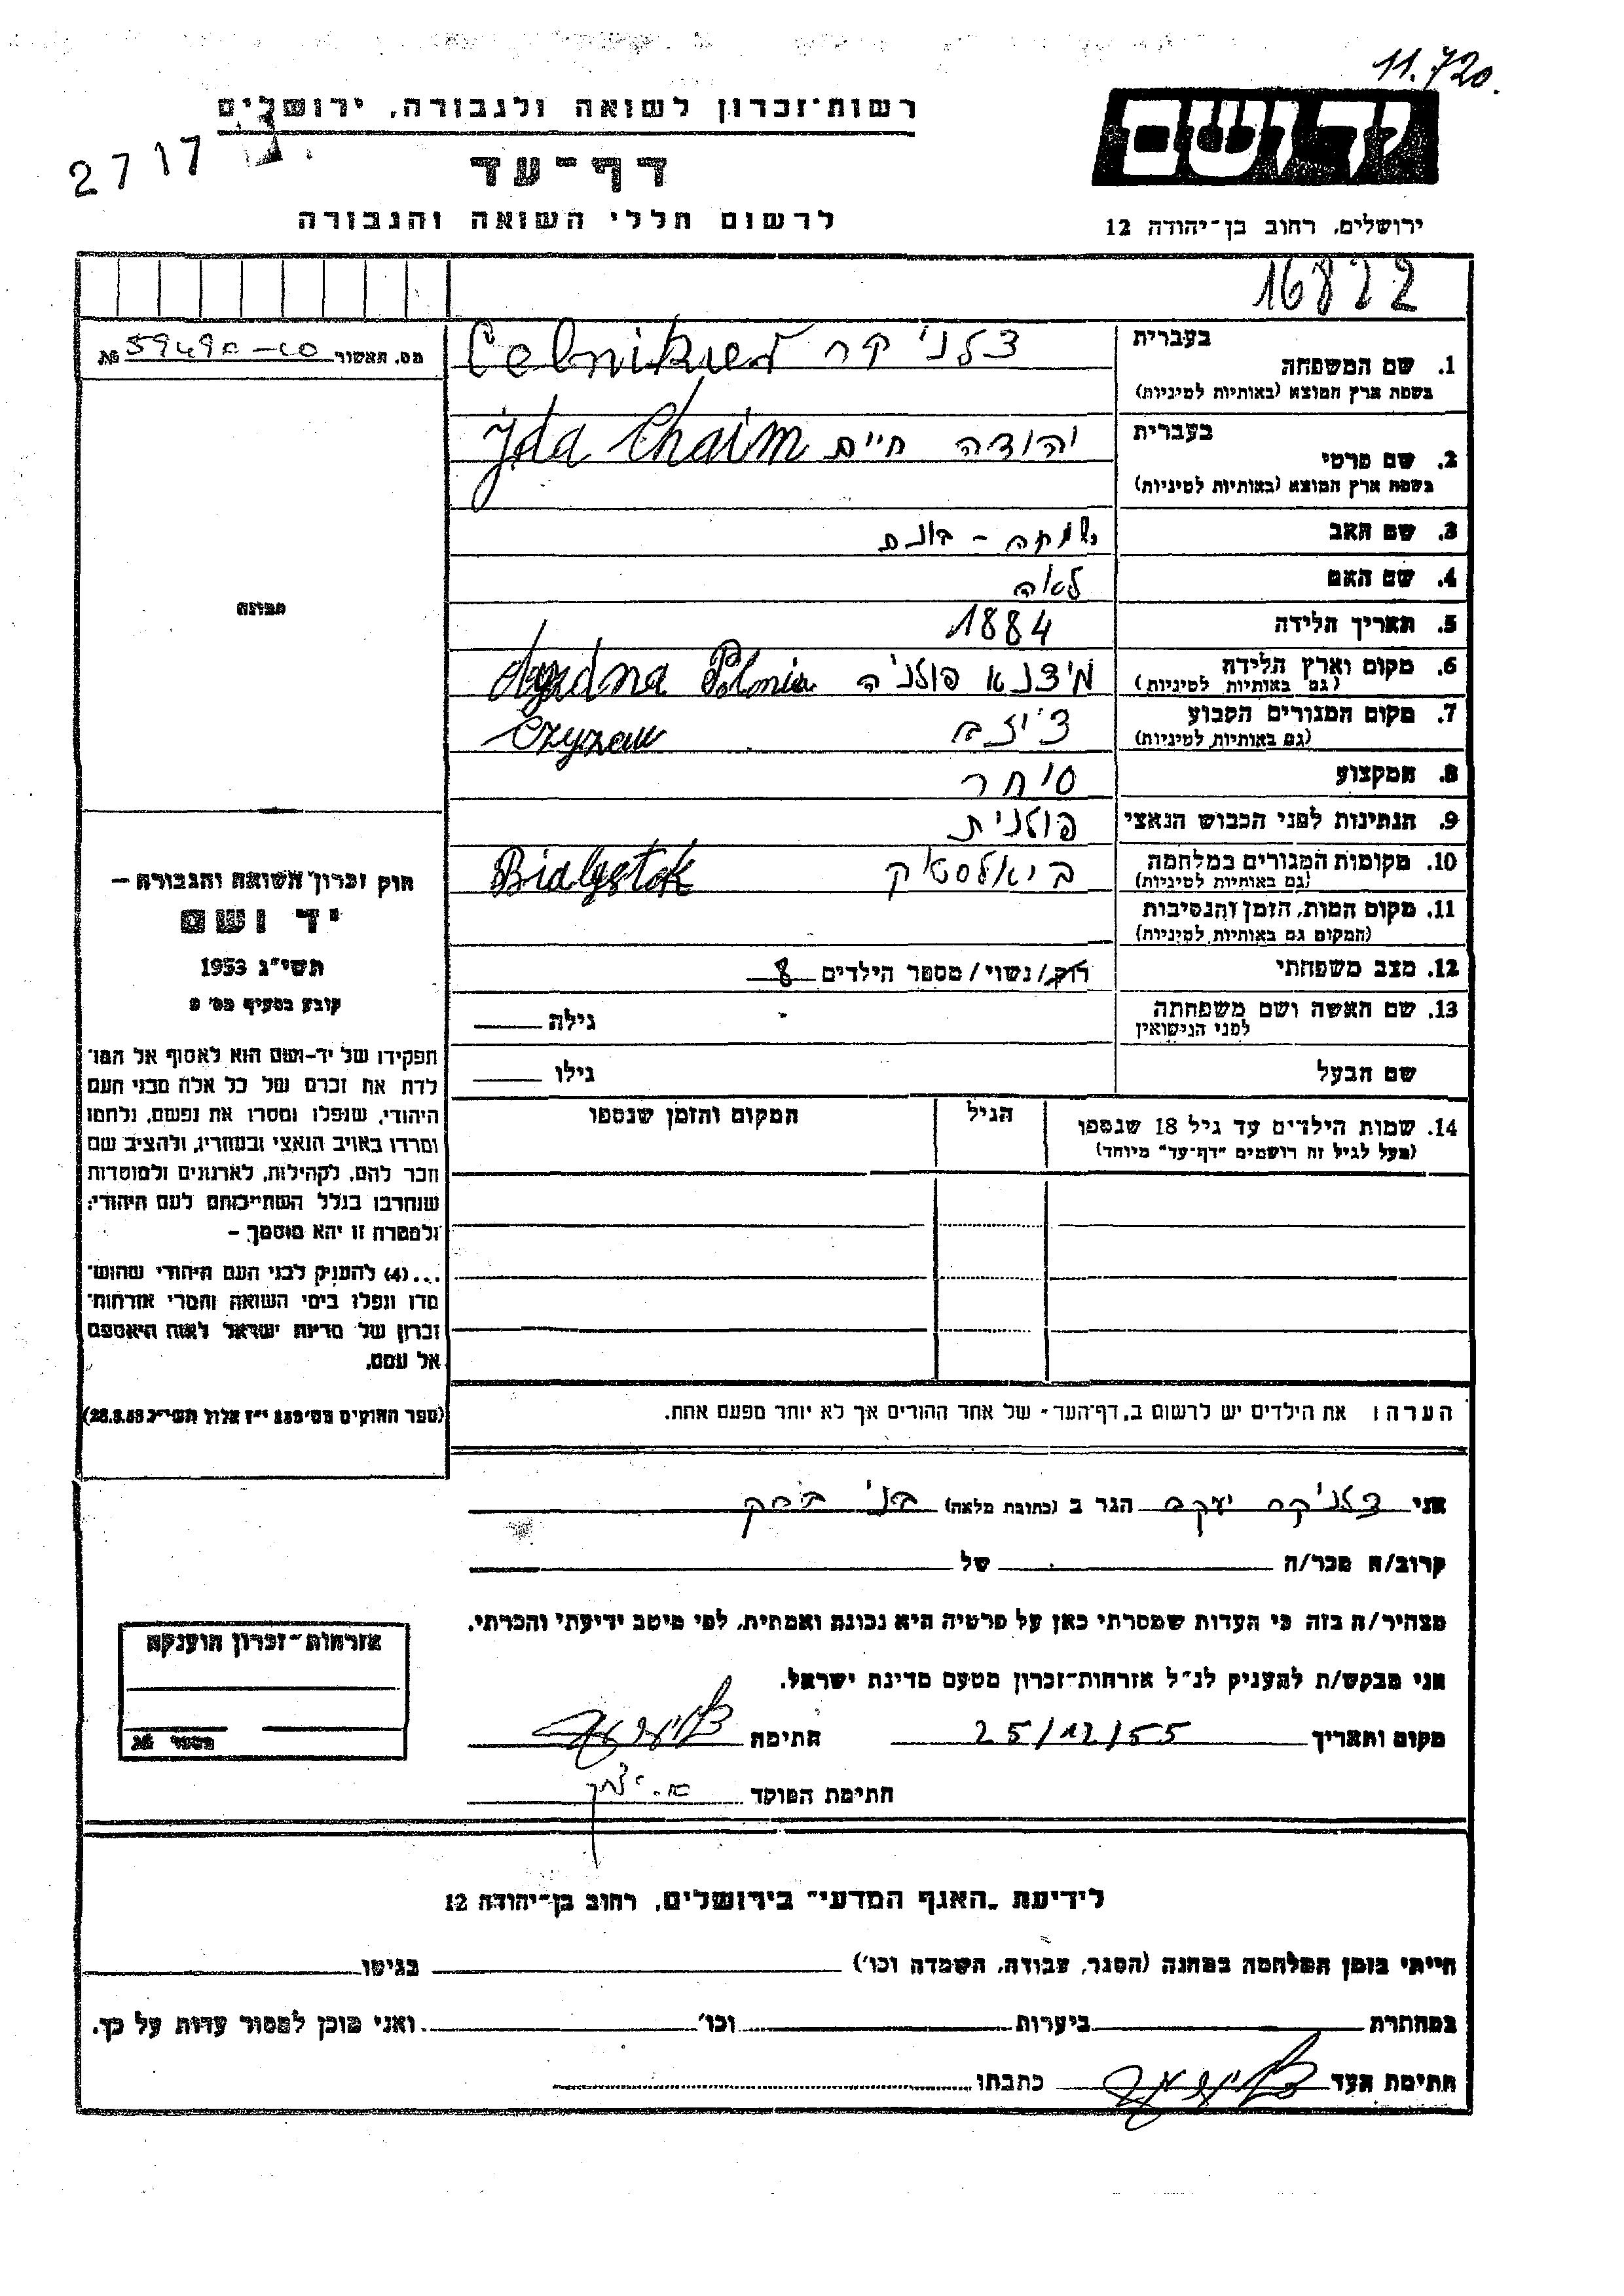 11.720.
רשות־זכרון לשואה ולגבורה, ירושלים
יד ושם
2717
דף־עד
לרשום חללי השואה והגבורה
ירושלים, רחוב בן־יהודה 12
16822
בעברית
1. שם המשפחה צלניקר Celnikier
בשפת ארץ המוצא (באותיות לטיניות)
מס. האשור №
בעברית
2. שם פרטי יהודה חיים Jda Chaim
בשפת ארץ המוצא (באותיות לטיניות)
3. שם האב שמחה - בונם
4. שם האם לאה
5. תאריך הלידה 1884
6. מקום וארץ הלידה פולניה Polonia
(גם באותיות לטיניות)
7. מקום המגורים הקבוע צ'יזב Czyzew
(גם באותיות לטיניות)
8. המקצוע סוחר
9. הנתינות לפני הכבוש הנאצי פולנית
10. מקומות המגורים במלחמה ביאלסטוק Bialystok
(גם באותיות לטיניות)
11. מקום המות, הזמן והנסיבות
(המקום גם באותיות לטיניות)
12. מצב משפחתי רוק/נשוי/מספר הילדים 8
13. שם האשה ושם משפחתה גילה
לפני הנישואין
שם הבעל גילו
14. שמות הילדים עד גיל 18 שנספו הגיל המקום והזמן שנספו
(מעל לגיל זה רושמים "דף־עד" מיוחד)
תמונה
חוק זכרון השואה והגבורה –
יד ושם
תשי"ג 1953
קובע בסעיף מס' 2
תפקידו של יד-ושם הוא לאסוף אל המו־
לדת את זכרם של כל אלה מבני העם
היהודי, שנפלו ומסרו את נפשם, נלחמו
ומרדו באויב הנאצי ובעוזריו, ולהציב שם
וזכר להם, לקהילות, לארגונים ולמוסדות
שנחרבו בגלל השתייכותם לעם היהודי;
ולמטרה זו יהא מוסמך –
...(4) להעניק לבני העם היהודי שהוש־
מדו ונפלו בימי השואה והמרי אזרחות־
זכרון של מדינת ישראל לאות היאספם
אל עמם.
(ספר החוקים מס' 132 י"ז אלול תשי"ג 28.8.53)
הערה: את הילדים יש לרשום ב„דף־העד" של אחד ההורים אך לא יותר מפעם אחת.
אני צלניקר יעקב הגר ב (כתובת מלאה) בני ברק
קרוב/ה מכר/ה של
מצהיר/ה בזה כי העדות שמסרתי כאן על פרטיה היא נכונה ואמתית, לפי מיטב ידיעתי והכרתי.
אני מבקש/ת להעניק לנ"ל אזרחות־זכרון מטעם מדינת ישראל.
מקום ותאריך 25/12/55 חתימה
חתימת הפוקד
אזרחות־זכרון הוענקה
מספר №
לידיעת „האגף המדעי" בירושלים, רחוב בן־יהודה 12
הייתי בזמן המלחמה במחנה (הסגר, עבודה, השמדה וכו') בגיטו
במחתרת ביערות וכו' ואני מוכן למסור עדות על כך.
חתימת העד כתבתו